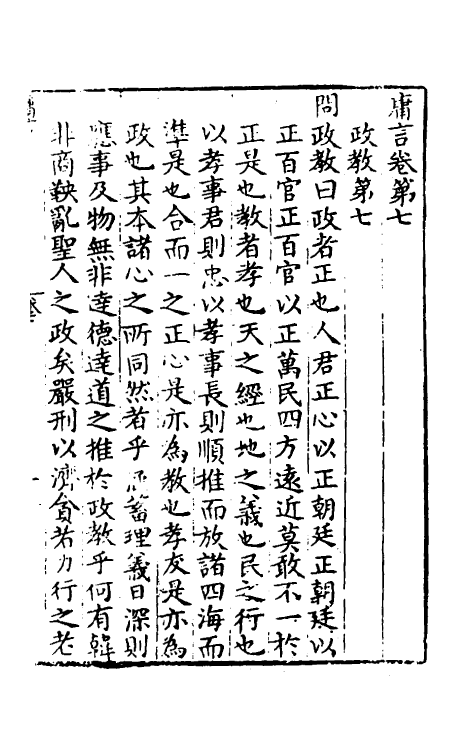 庸言卷第七
政教第七
問政教曰政者正也人君正心以正朝廷正朝廷以
正百官正百官以正萬民四方遠近莫敢不一於
正是也教者孝也天之經也地之義也民之行也
以孝事君則忠以孝事長則順推而放諸四海而
準是也合而一之正心是亦為教也孝友是亦為
政也其本諸心之所同然者乎涵蓄理義日深則
應事及物無非達德達道之推於政教乎何有韓
非商鞅亂聖人之政矣嚴刑以濟貪若力行之老